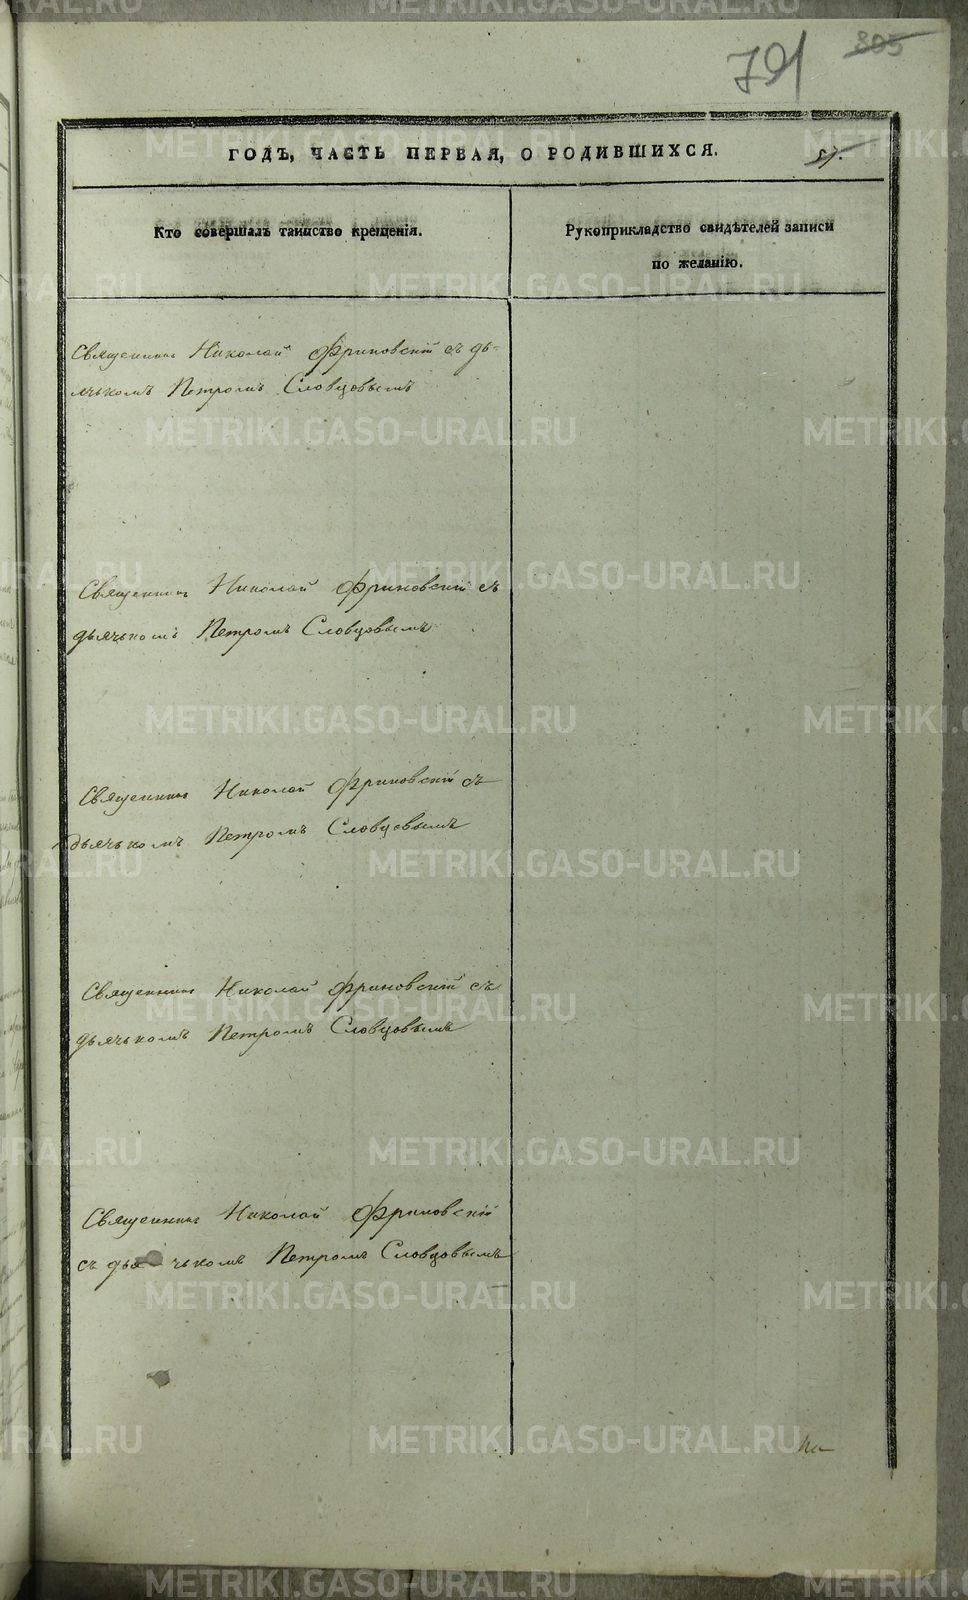 791
805
ГОДЪ, ЧАСТЬ ПЕРВАЯ, О РОДИВШИХСЯ.
57.
Кто совершалъ таинство крещенія.
Рукоприкладство свидѣтелей записи
по желанію.
Священникъ Николай Фриновскій съ дь-
ячькомъ Петромъ Словцовымъ
Священникъ Николай Фриновскій съ
дьячькомъ Петромъ Словцовымъ
Священникъ Николай Фриновскій съ
дьячькомъ Петромъ Словцовымъ
Священникъ Николай Фриновскій съ
дьячькомъ Петромъ Словцовымъ
Священникъ Николай Фриновскій
съ дья-чькомъ Петромъ Словцовымъ
METRIKI.GASO-URAL.RU